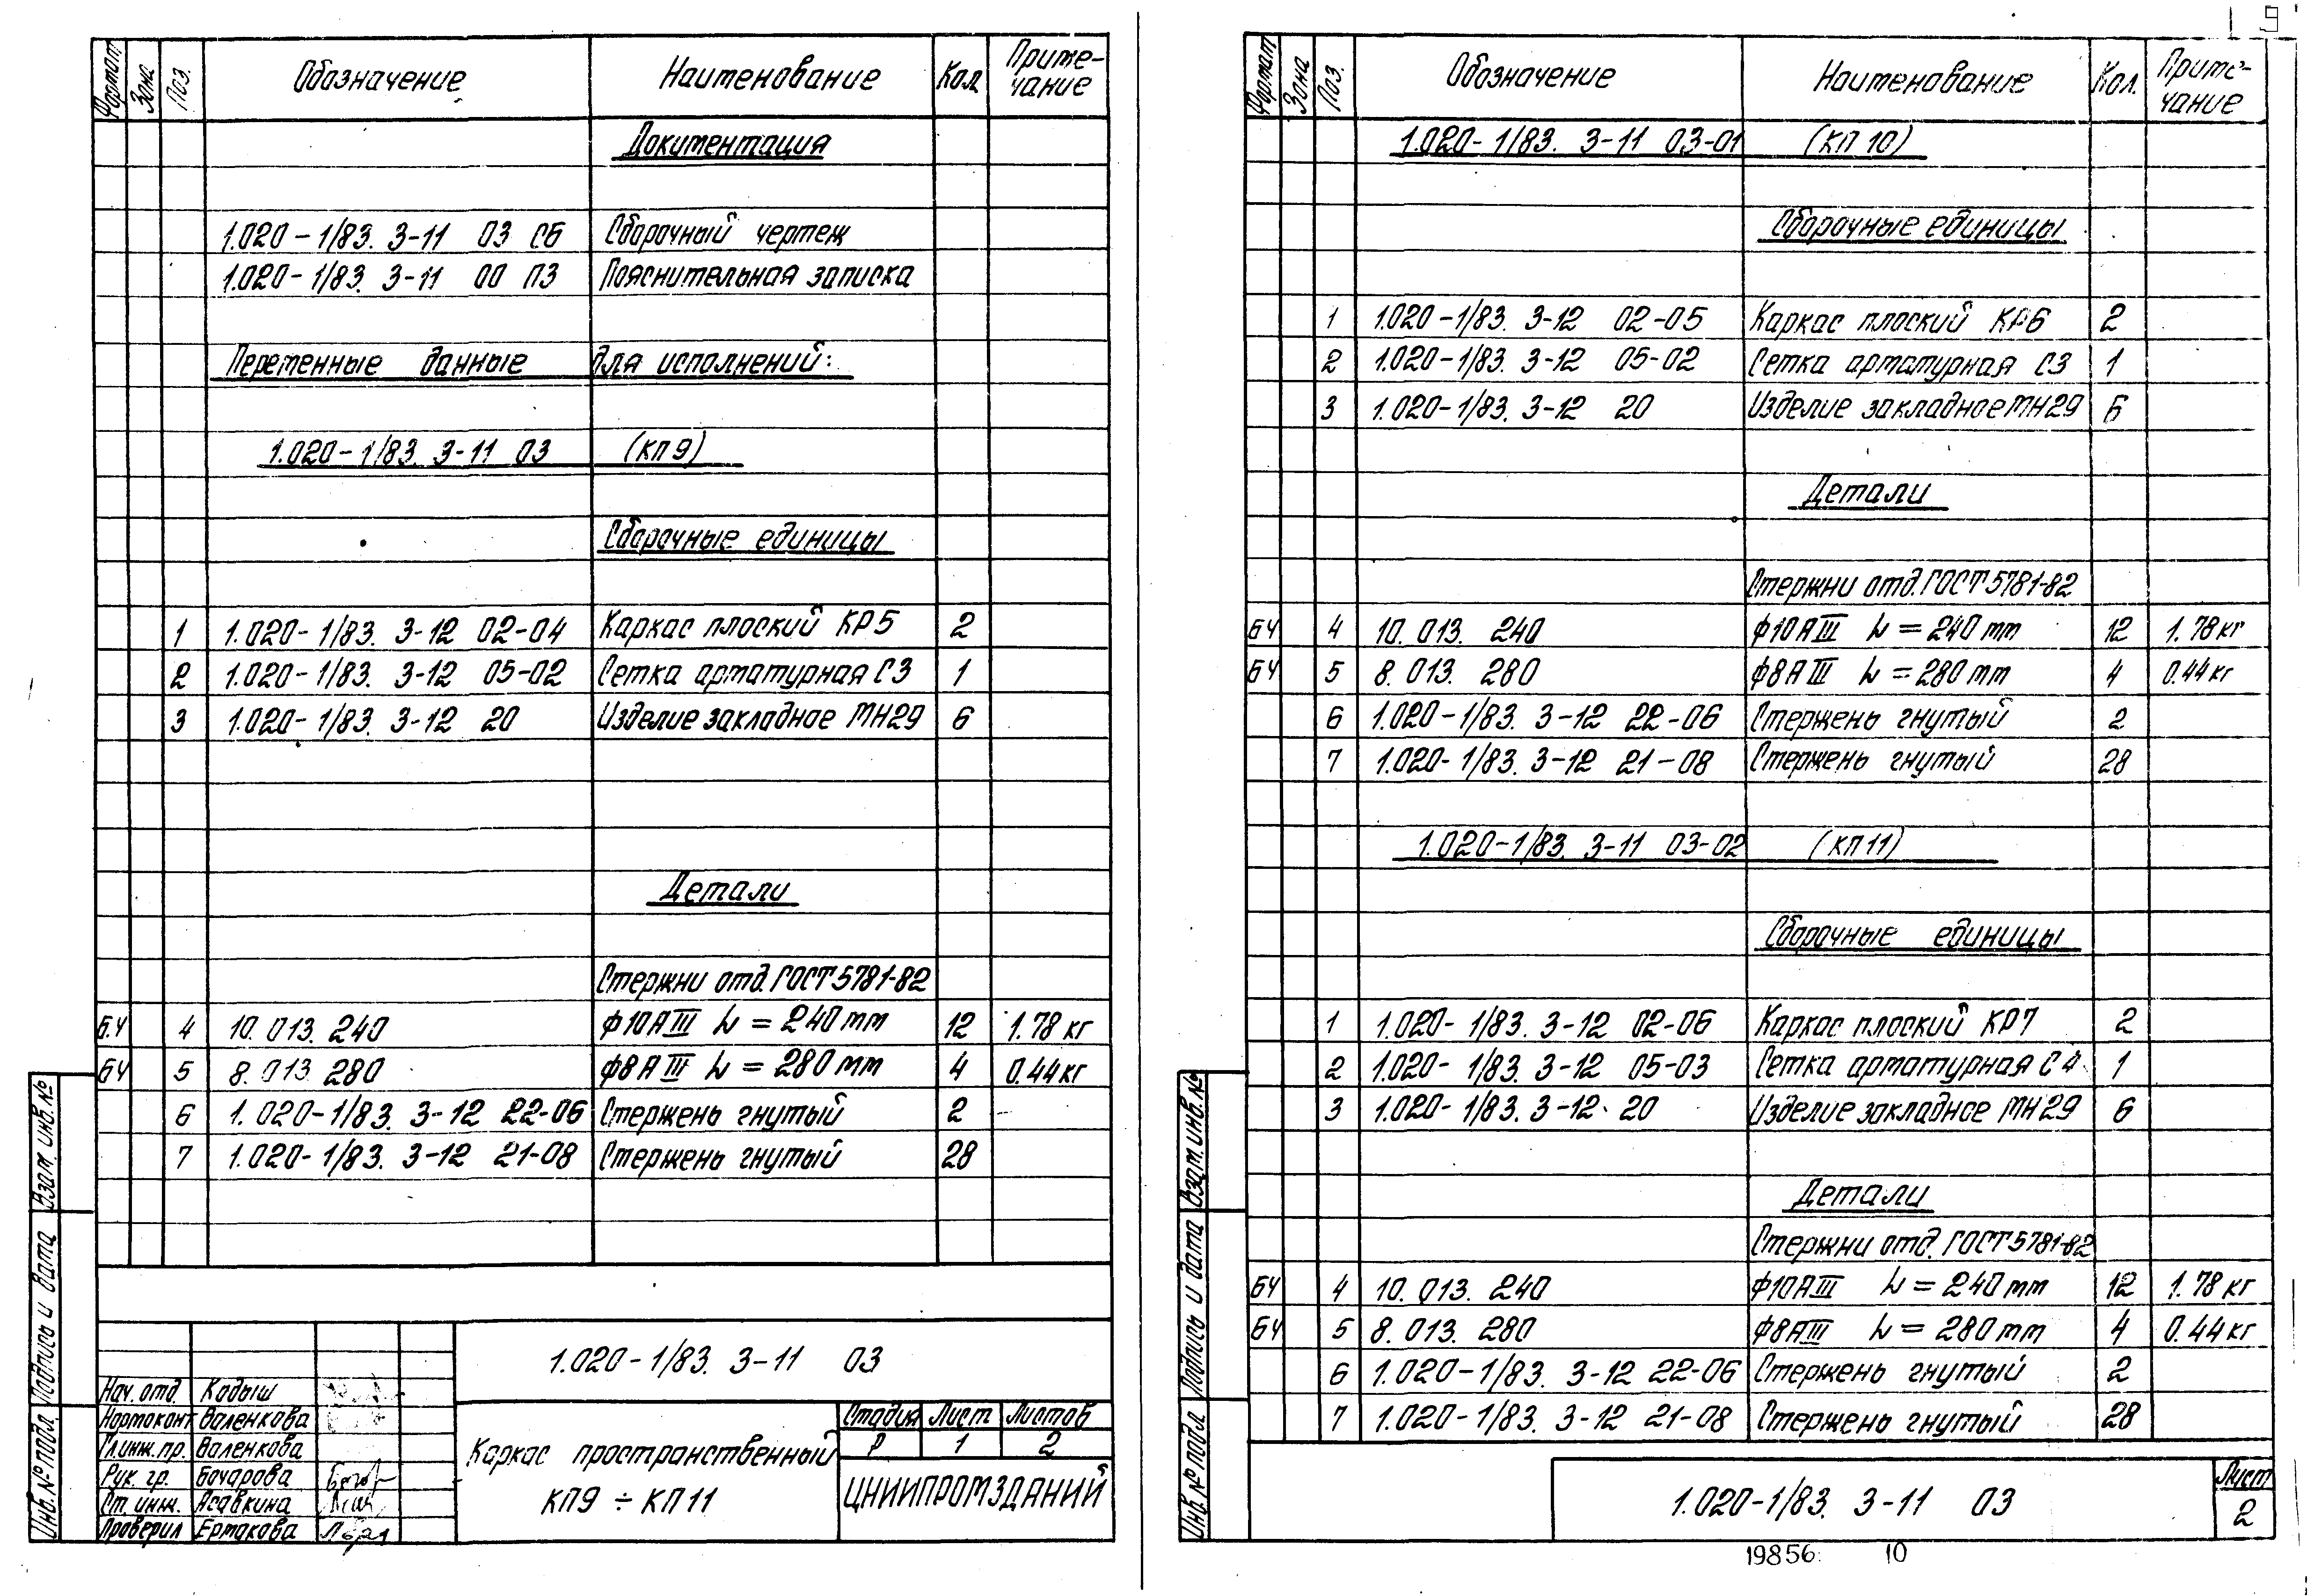 Формат Зона Поз. Обозначение Наименование Кол. Приме-
чание
Документация
1.020-1/83. 3-11 03 СБ Сборочный чертеж
1.020-1/83. 3-11 00 ПЗ Пояснительная записка
Переменные данные для исполнений:
1.020-1/83. 3-11 03 (КП9)
Сборочные единицы
1 1.020-1/83. 3-12 02-04 Каркас плоский КР5 2
2 1.020-1/83. 3-12 05-02 Сетка арматурная С3 1
3 1.020-1/83. 3-12 20 Изделие закладное МН29 6
Детали
Стержни отд. ГОСТ 5781-82
Б.Ч 4 10. 013. 240 Ф10АIII L = 240 мм 12 1.78 кг
БЧ 5 8. 013. 280 Ф8АIII L = 280 мм 4 0.44 кг
6 1.020-1/83. 3-12 22-06 Стержень гнутый 2
7 1.020-1/83. 3-12 21-08 Стержень гнутый 28
Взам. инв. №
Подпись и дата
Инв. № подл.
1.020-1/83. 3-11 03
Нач. отд. Кодыш
Нормоконт Валенкова
Гл. инж. пр. Валенкова
Рук. гр. Бочарова
Ст. инж. Асавкина
Проверил Ермакова
Каркас пространственный
КП9 ÷ КП11
Стадия Лист Листов
Р 1 2
ЦНИИПРОМЗДАНИЙ
9
Формат Зона Поз. Обозначение Наименование Кол. Приме-
чание
1.020-1/83. 3-11 03-01 (КП 10)
Сборочные единицы
1 1.020-1/83. 3-12 02-05 Каркас плоский КР6 2
2 1.020-1/83. 3-12 05-02 Сетка арматурная С3 1
3 1.020-1/83. 3-12 20 Изделие закладное МН29 6
Детали
Стержни отд. ГОСТ 5781-82
БЧ 4 10. 013. 240 Ф10АIII L = 240 мм 12 1.78 кг
БЧ 5 8. 013. 280 Ф8АIII L = 280 мм 4 0.44 кг
6 1.020-1/83. 3-12 22-06 Стержень гнутый 2
7 1.020-1/83. 3-12 21-08 Стержень гнутый 28
1.020-1/83. 3-11 03-02 (КП11)
Сборочные единицы
1 1.020-1/83. 3-12 02-06 Каркас плоский КР7 2
2 1.020-1/83. 3-12 05-03 Сетка арматурная С4 1
3 1.020-1/83. 3-12 20 Изделие закладное МН29 6
Детали
Стержни отд. ГОСТ 5781-82
БЧ 4 10. 013. 240 Ф10АIII L = 240 мм 12 1.78 кг
БЧ 5 8. 013. 280 Ф8АIII L = 280 мм 4 0.44 кг
6 1.020-1/83. 3-12 22-06 Стержень гнутый 2
7 1.020-1/83. 3-12 21-08 Стержень гнутый 28
Взам. инв. №
Подпись и дата
Инв. № подл.
1.020-1/83. 3-11 03
Лист
2
19856 10